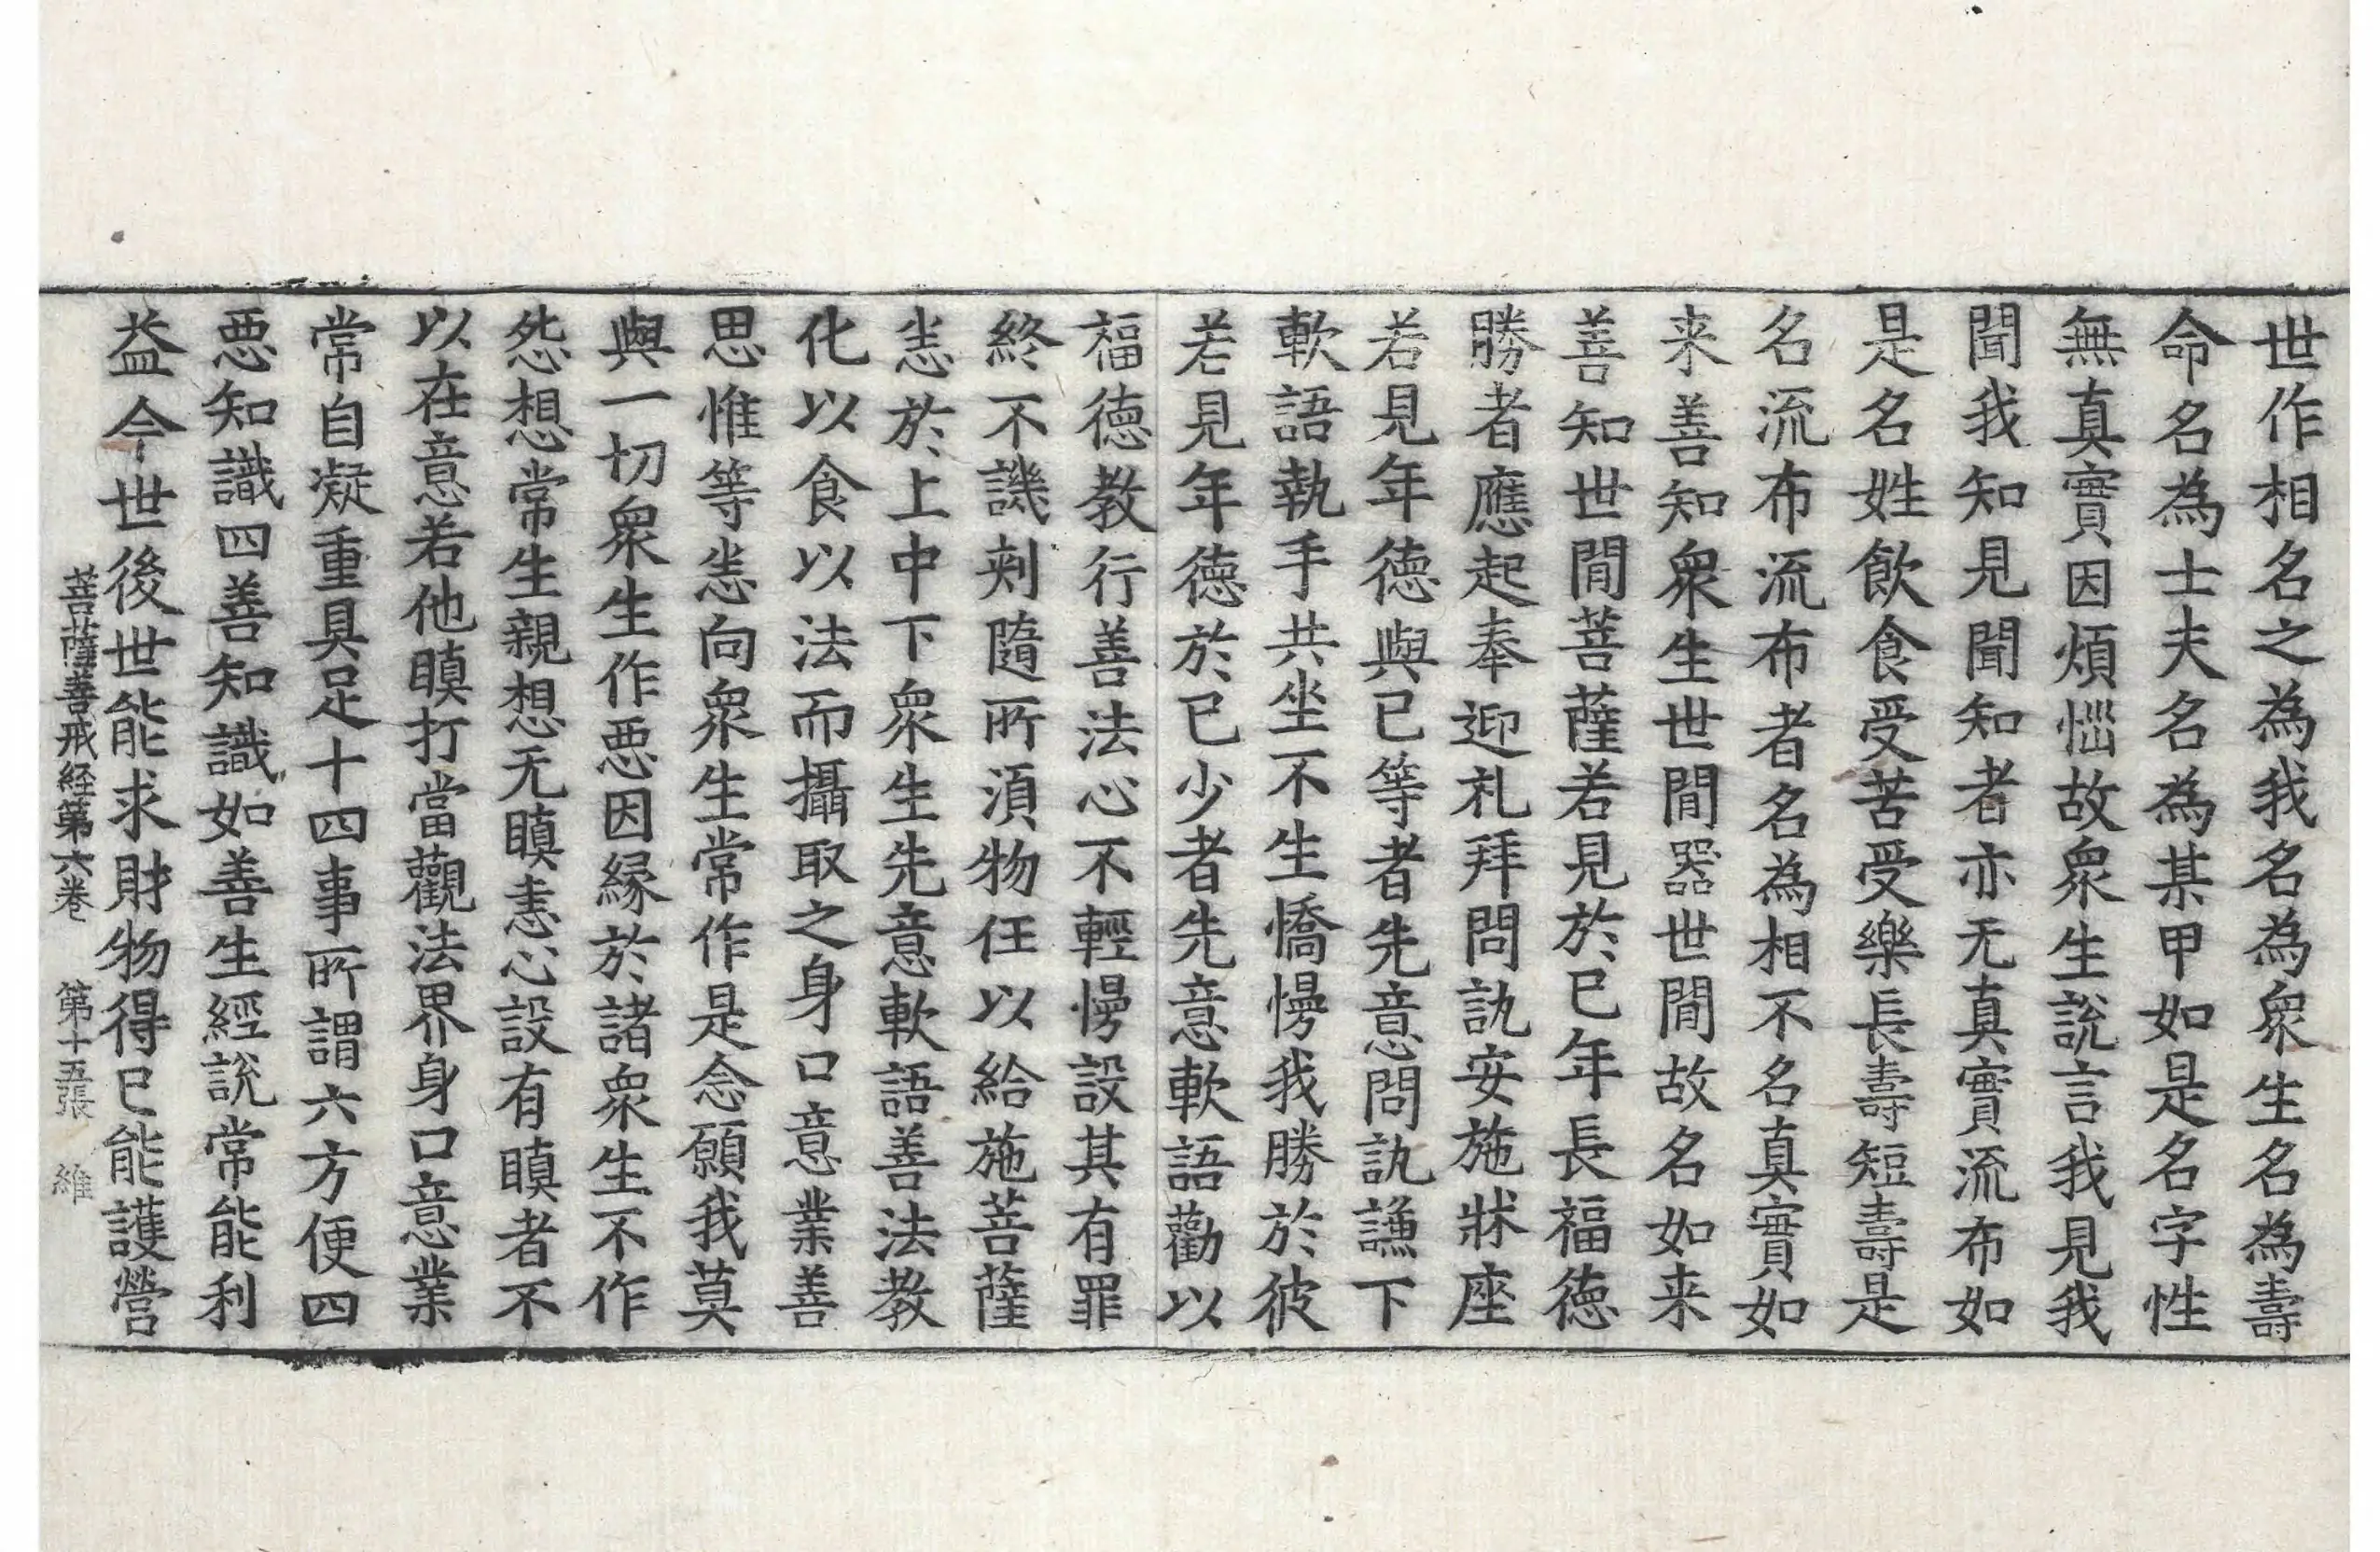 世作相名之為我名為衆生名為壽
命名為士夫名為某甲如是名字性
無真實因煩惱故衆生說言我見我
聞我知見聞知者亦无真實流布如
是名姓飲食受苦受樂長壽短壽是
名流布流布者名為相不名真實如
来善知衆生世間器世間故名如来
善知世間菩薩若見於已年長福德
勝者應起奉迎礼拜問訊安施牀座
若見年德與已等者先意問訊謙下
軟語執手共坐不生憍慢我勝於彼
若見年德於已少者先意軟語勸以
福德教行善法心不輕慢設其有罪
終不譏刾隨所湏物任以給施菩薩
恙於上中下衆生先意軟語善法教
化以食以法而攝取之身口意業善
思惟等恙向衆生常作是念願我莫
與一切衆生作惡因縁於諸衆生不作
怨想常生親想无瞋恚心設有瞋者不
以在意若他瞋打當觀法界身口意業
常自凝重具足十四事所謂六方便四
惡知識四善知識如善生經說常能利
益今世後世能求財物得已能護營
菩薩善戒経第六卷 第十五張 維